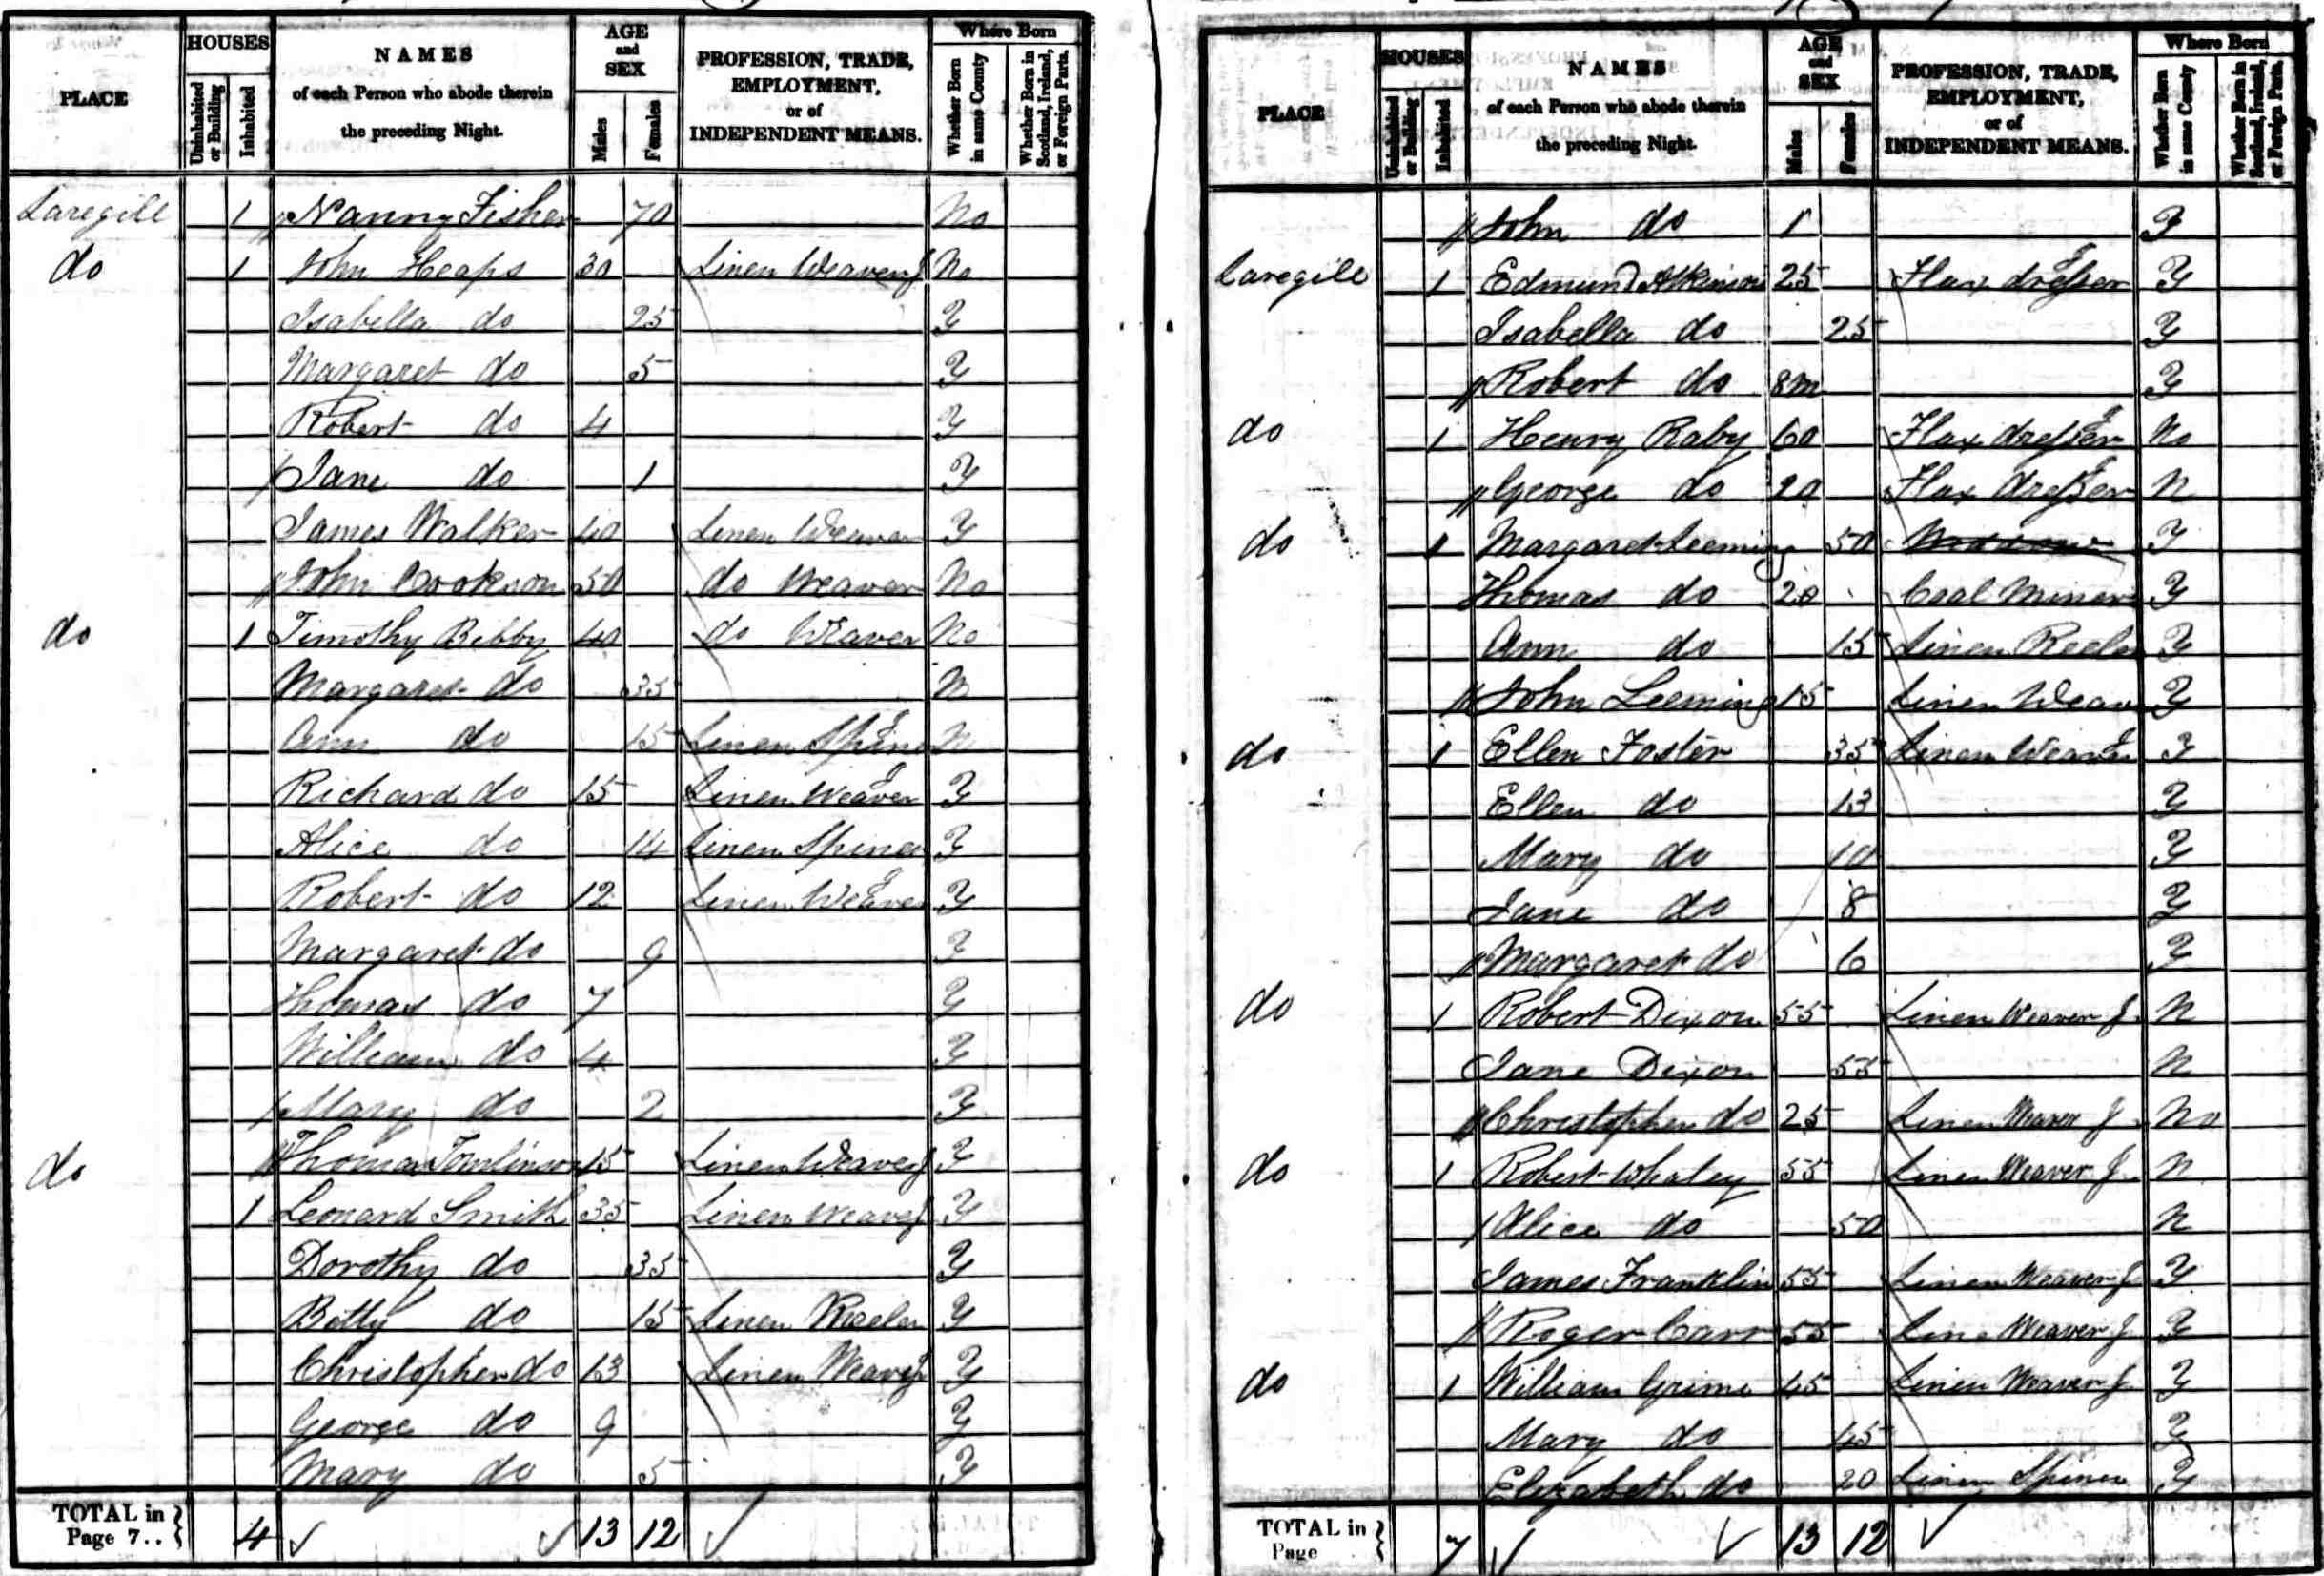 PLACE
HOUSES
Uninhabited or Building
Inhabited
NAMES
of each Person who abode therein
the preceding Night.
AGE and SEX
Males
Females
PROFESSION, TRADE, EMPLOYMENT, or of INDEPENDENT MEANS.
Where Born
Whether Born in same County
Whether Born in Scotland, Ireland, or Foreign Parts.
Laregill 1 Nanny Fisher 70 No
do 1 John Heaps 30 Linen Weaver J No
Isabella do 25 Y
Margaret do 5 Y
Robert do 4 Y
Jane do 1 Y
James Walker 40 Linen Weaver Y
John Cookson 50 do Weaver No
do 1 Timothy Bibby 40 do Weaver No
Margaret do 35 N
Ann do 15 Linen Spiner N
Richard do 15 Linen Weaver Y
Alice do 14 Linen Spiner Y
Robert do 12 Linen Weaver Y
Margaret do 9 Y
Thomas do 7 Y
William do 4 Y
Mary do 2 Y
do Thomas Tomlinson 15 Linen Weaver J Y
1 Leonard Smith 35 Linen Weaver J Y
Dorothy do 35 Y
Betty do 15 Linen Reeler Y
Christopher do 13 Linen Weaver J Y
George do 9 Y
Mary do 5 Y
TOTAL in Page 7.. 4 13 12
PLACE
HOUSES
Uninhabited or Building
Inhabited
NAMES
of each Person who abode therein
the preceding Night.
AGE and SEX
Males
Females
PROFESSION, TRADE, EMPLOYMENT, or of INDEPENDENT MEANS.
Where Born
Whether Born in same County
Whether Born in Scotland, Ireland, or Foreign Parts.
John do 1 Y
Laregill 1 Edmund Atkinson 25 Flax dresser Y
Isabella do 25 Y
Robert do 8m Y
do 1 Henry Raby 60 Flax dresser No
George do 20 Flax dresser N
do 1 Margaret Leeming 50 Y
Thomas do 20 Coal Miner Y
Ann do 15 Linen Reeler Y
John Leeming 15 Linen Weaver Y
do 1 Ellen Foster 35 Linen Weaver Y
Ellen do 13 Y
Mary do 10 Y
Jane do 8 Y
Margaret do 6 Y
do 1 Robert Dixon 55 Linen Weaver J N
Jane Dixon 55 N
Christopher do 25 Linen Weaver J No
do 1 Robert Whaley 55 Linen Weaver J N
Alice do 50 N
James Franklin 55 Linen Weaver J Y
Roger Carr 55 Line Weaver J Y
do 1 William Grime 45 Linen Weaver J Y
Mary do 45 Y
Elizabeth do 20 Linen Spiner Y
TOTAL in Page 7 13 12